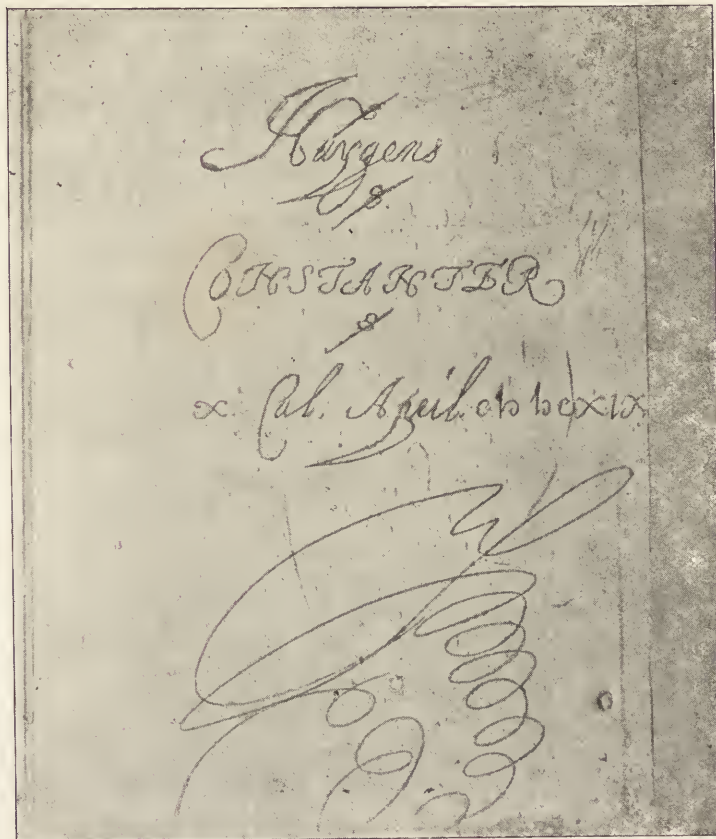 Huygens
CONSTANTER
x. Cal. April. cIↄ Iↄc xix